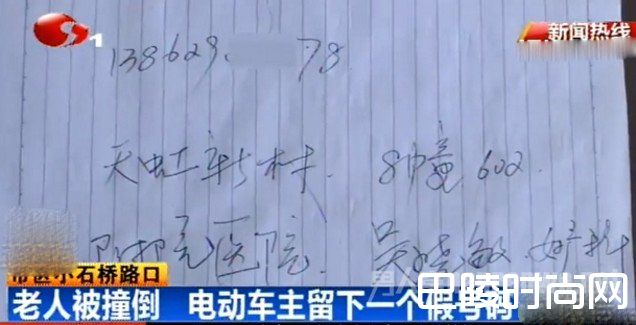 1
新闻热线
138629 78
天虹新村 8幢 602
医院 吴晓敏
小石桥路口
老人被撞倒 电动车主留下一个假号码
巴陵时尚网